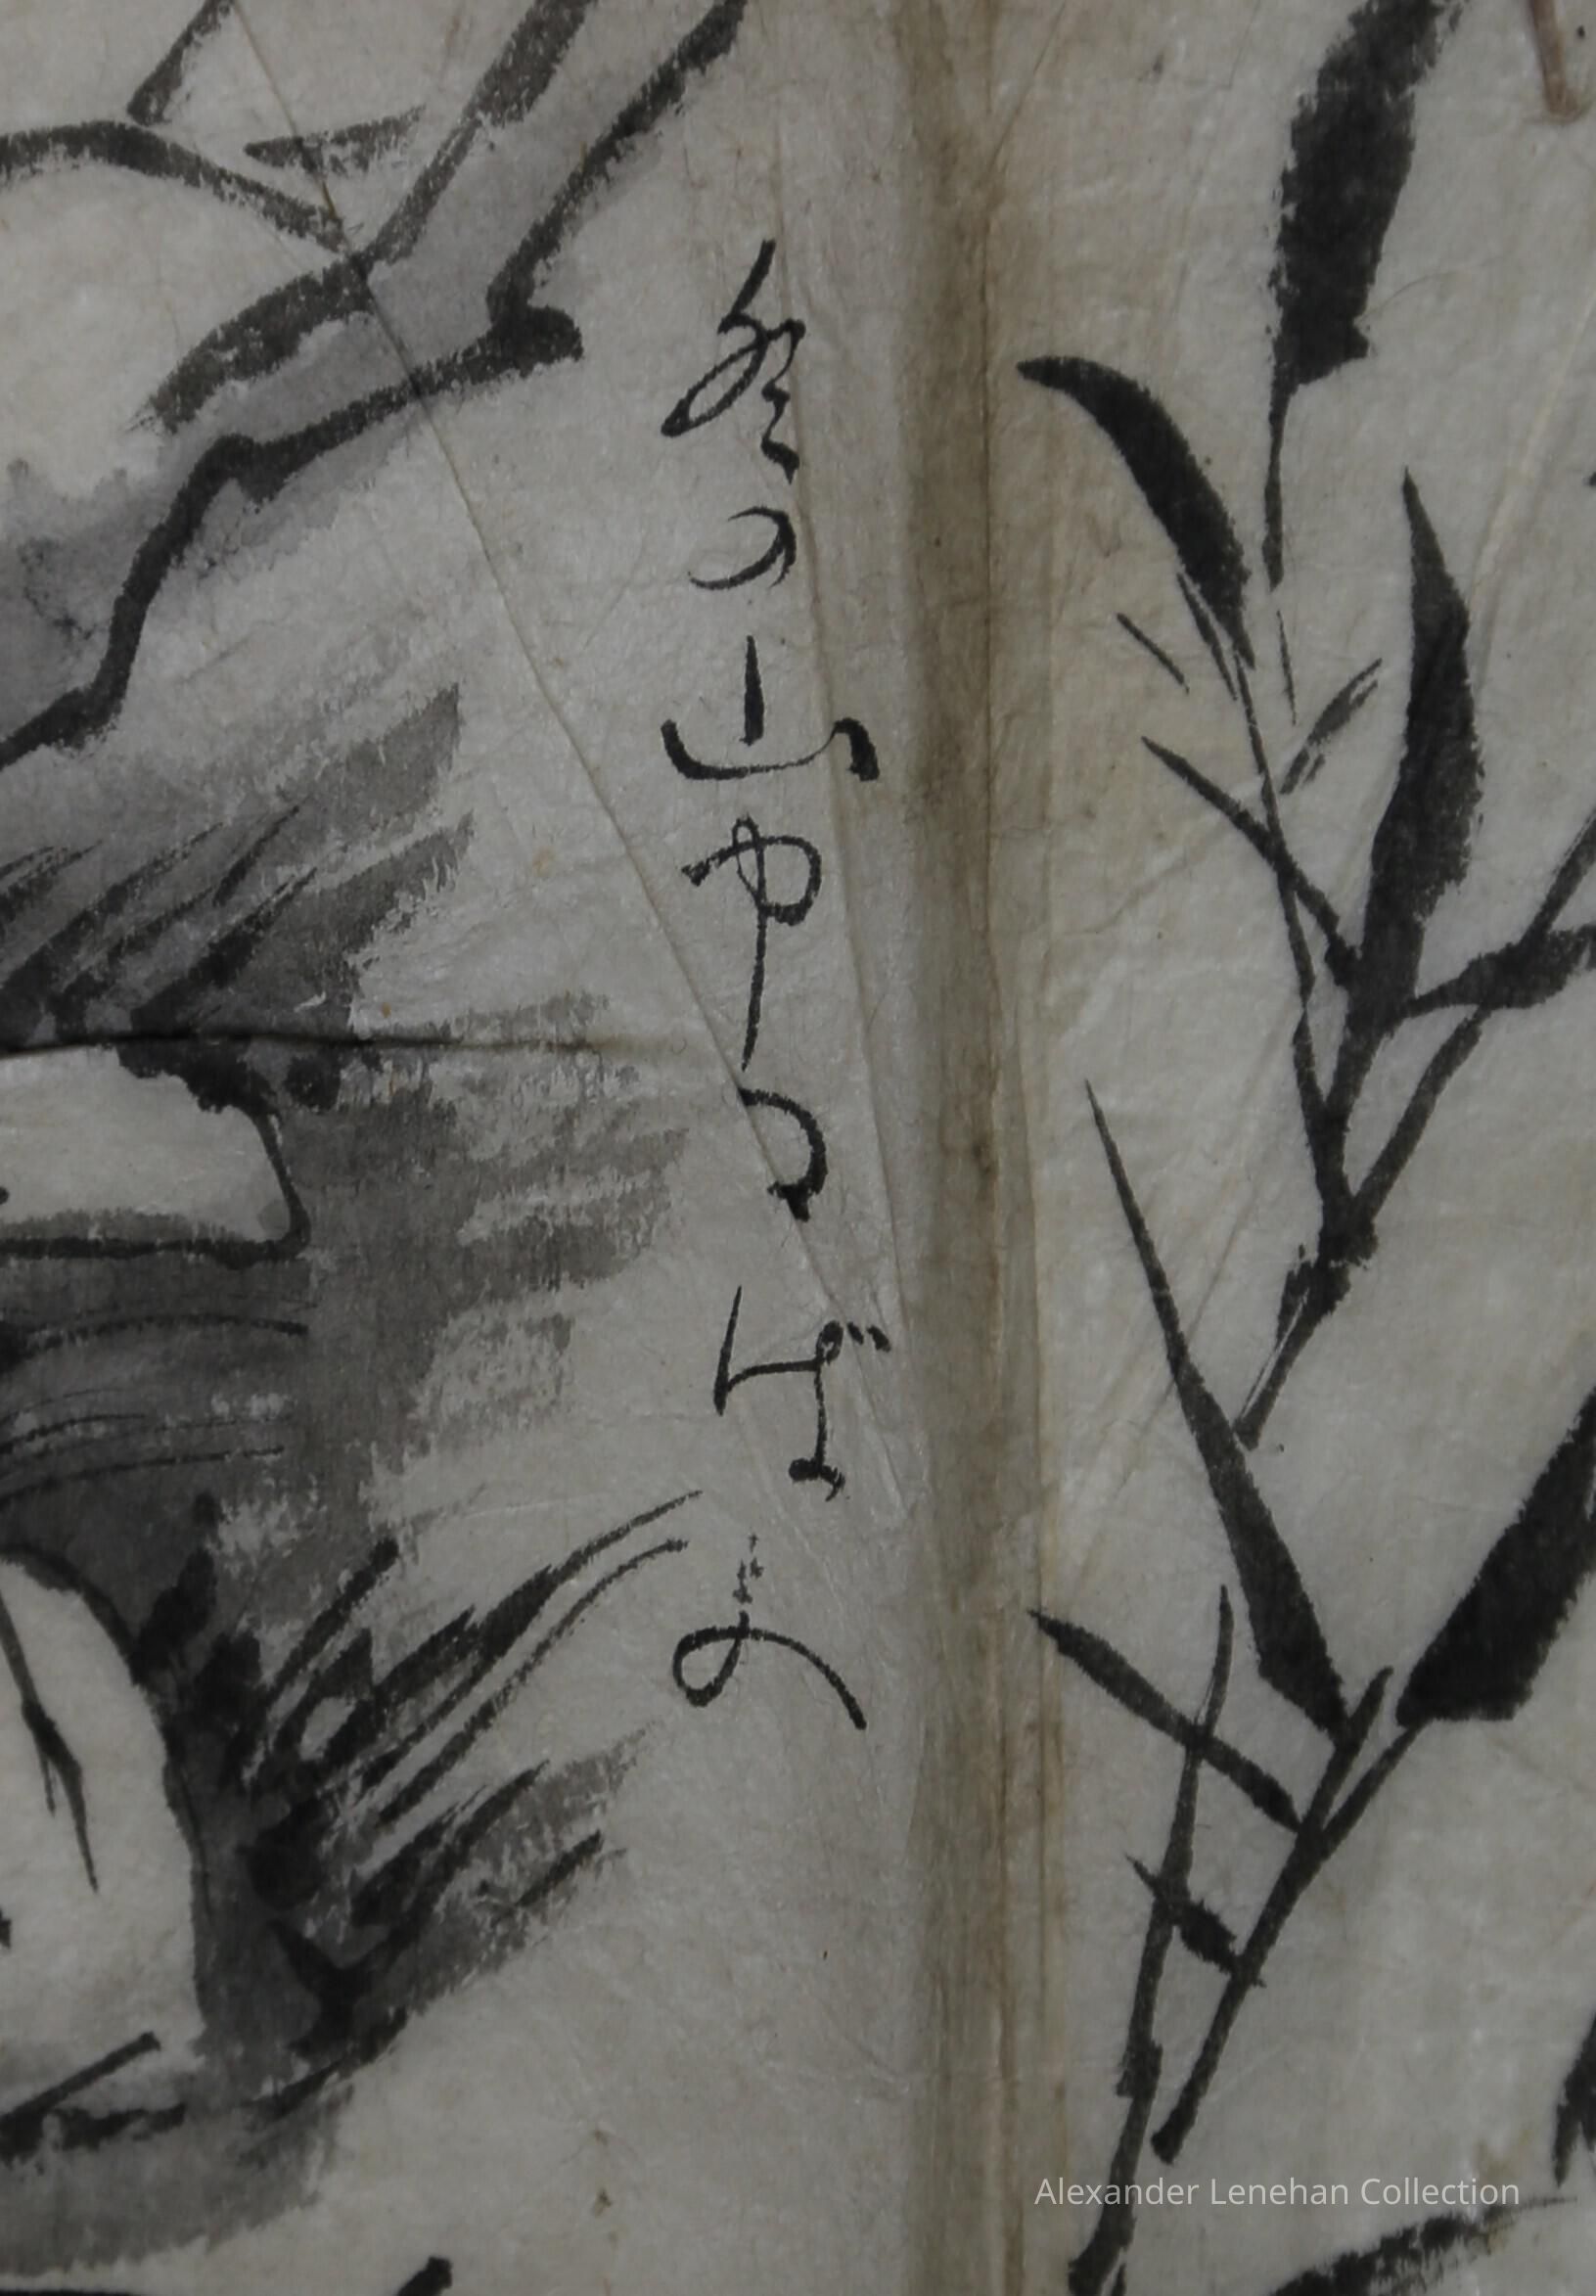 冬の山ゆうば
Alexander Lenehan Collection